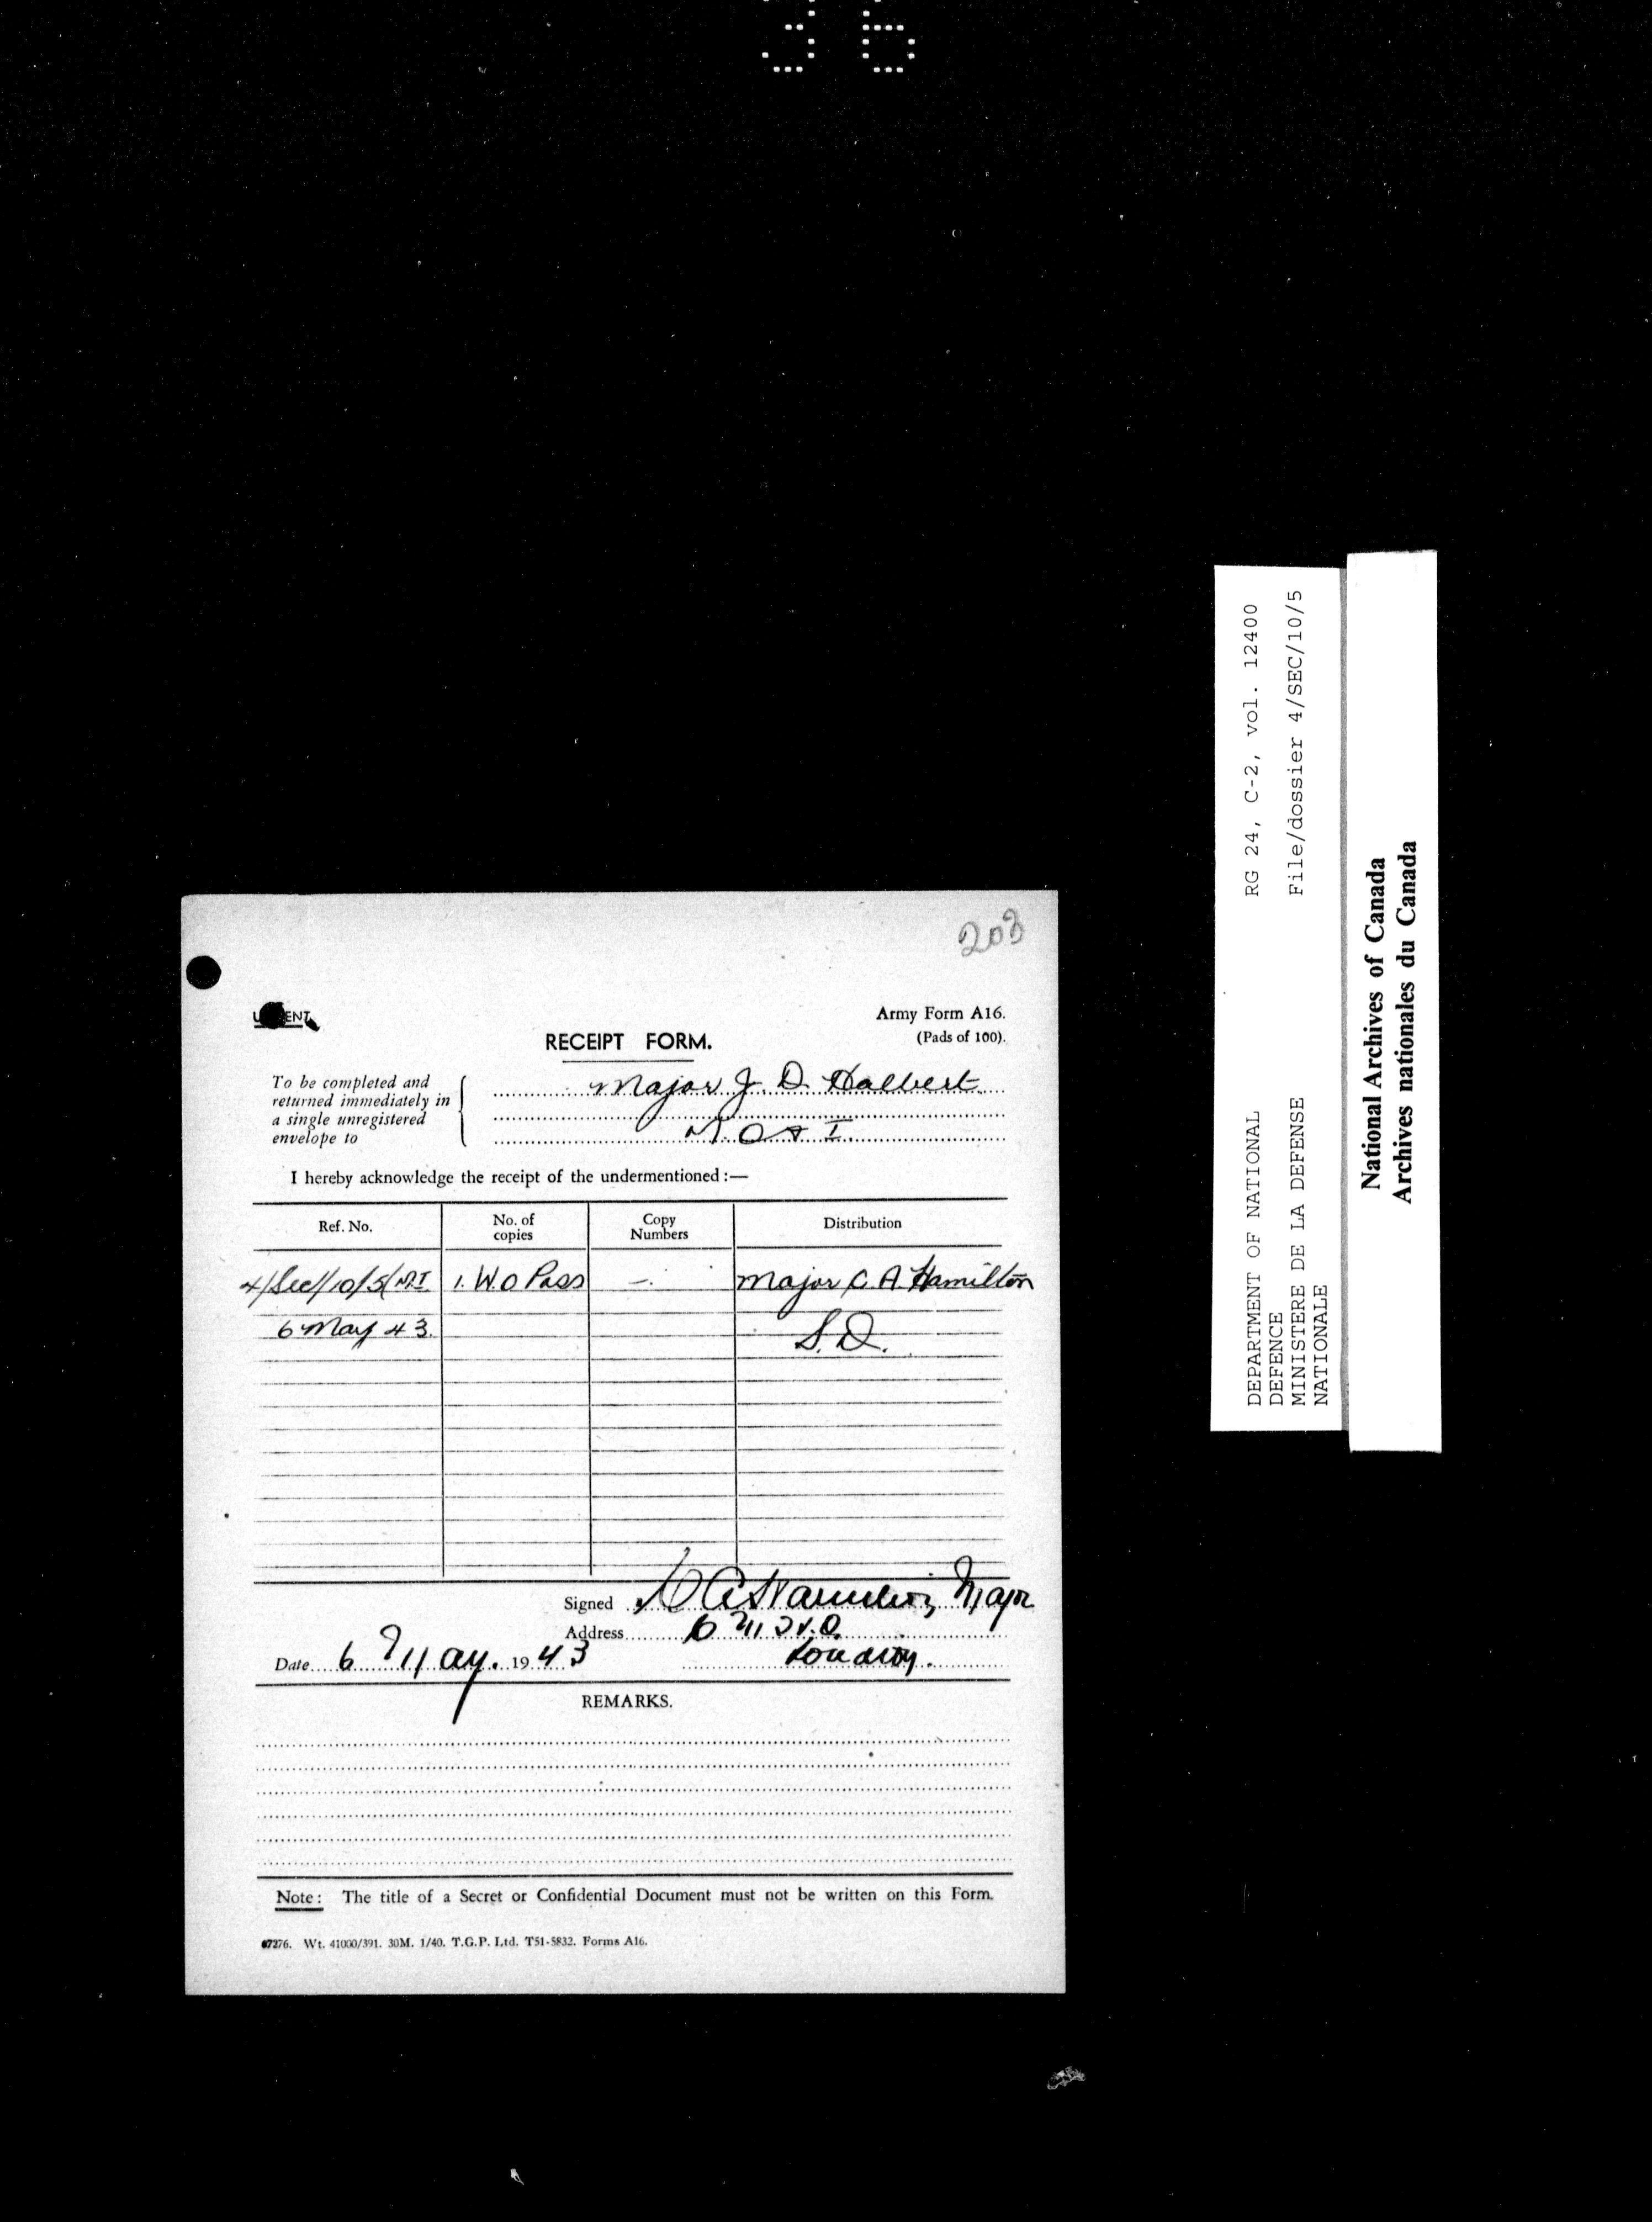 36
203
Army Form A16.
(Pads of 100).
RECEIPT FORM.
To be completed and
returned immediately in
a single unregistered
envelope to
Major J. D. Halbert
I hereby acknowledge the receipt of the undermentioned :—
Ref. No. No. of copies Copy Numbers Distribution
4/Sec/10/5 1. W.O Pass —. Major C. A. Hamilton
6 May 43. S.D.
Signed C A Hamilton Major
Address
London.
Date 6 May. 1943
REMARKS.
Note: The title of a Secret or Confidential Document must not be written on this Form.
07276. Wt. 41000/391. 30M. 1/40. T.G.P. Ltd. T51-5832. Forms A16.
DEPARTMENT OF NATIONAL RG 24, C-2, vol. 12400
DEFENCE
MINISTERE DE LA DEFENSE File/dossier 4/SEC/10/5
NATIONALE
National Archives of Canada
Archives nationales du Canada